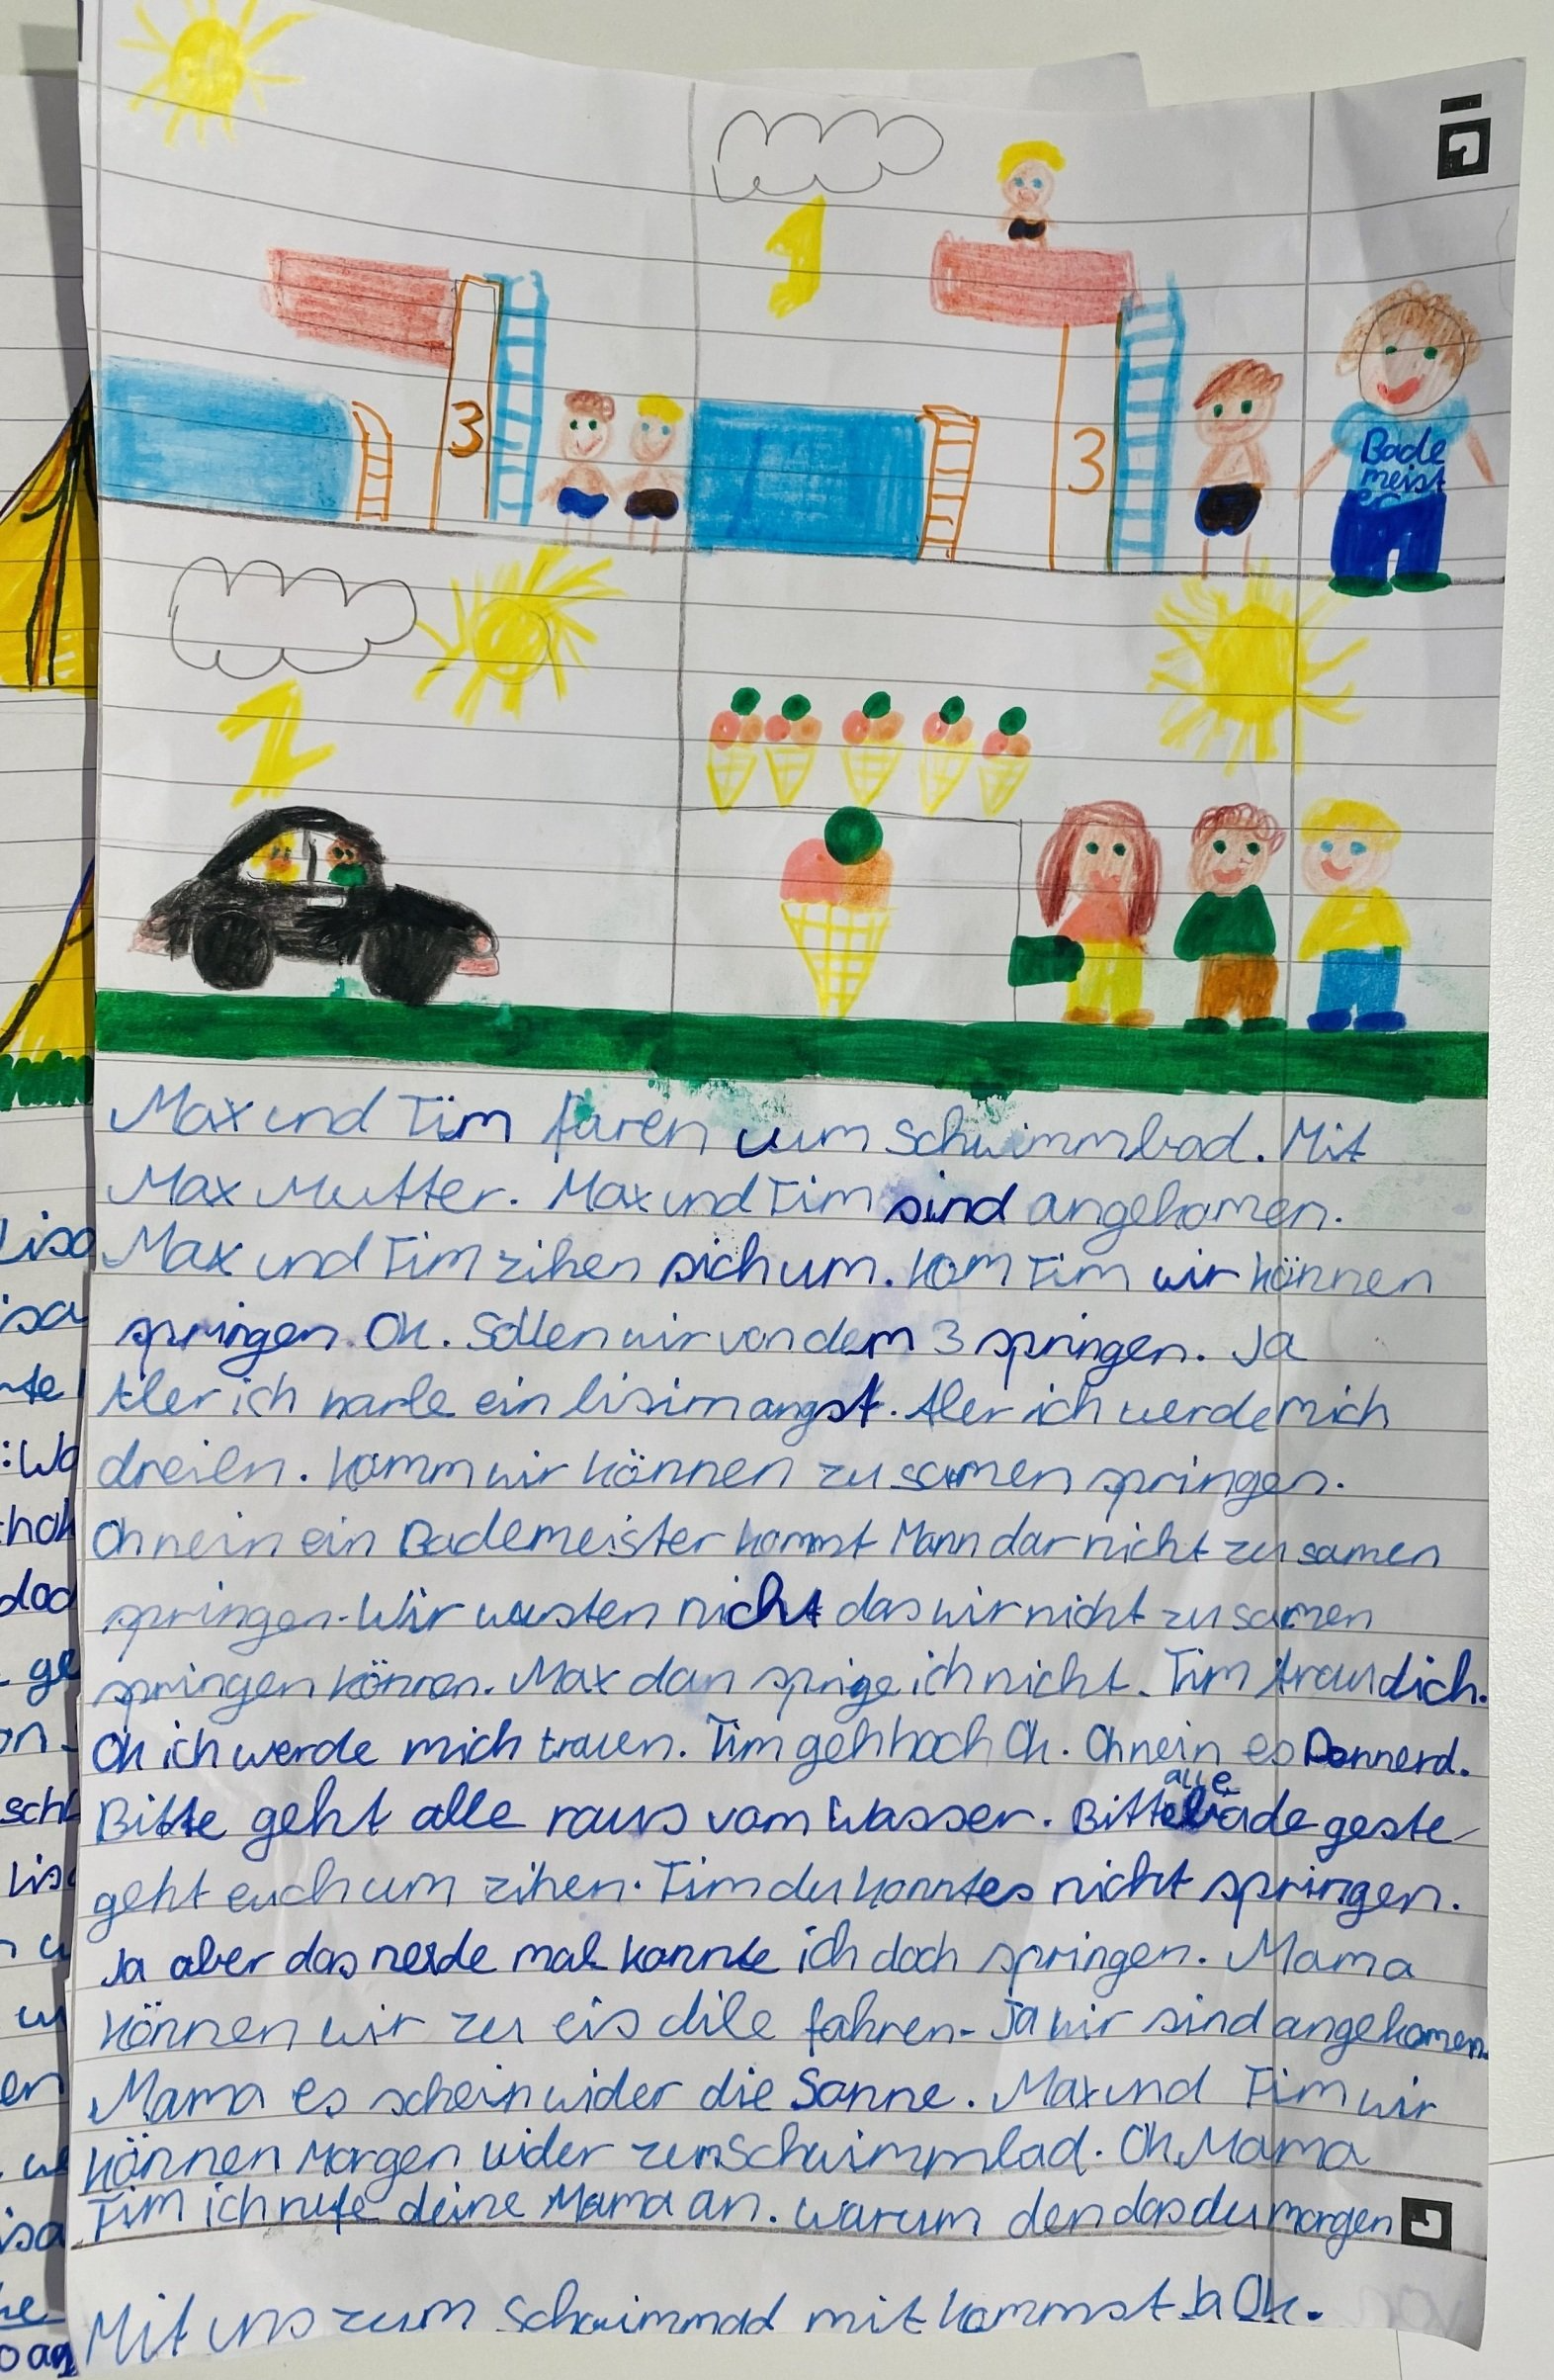 3
3
Bade
meist
er
Max und Tim faren zum schwimmbad. Mit
Max Mutter. Max und Tim sind angekomen.
Max und Tim zihen sich um. Kom Tim wir können
springen. Ok. Sollen wir von dem 3 springen. Ja
Aber ich habe ein bisim angst. Aber ich werde mich
Komm wir können zu samen springen.
Oh nein ein Bademeister kommt Mann dar nicht zu samen
springen. Wir wusten nicht das wir nicht zu samen
springen können. Max dan sprige ich nicht. Tim trau dich.
Ok ich werde mich trauen. Tim geh hoch Ok. Oh nein es Donnerd.
alle
Bitte geht alle raus vom Wasser. Bitte bade geste
geht euch um zihen. Tim du konntes nicht springen.
Ja aber das mal konnte ich doch springen. Mama
können wir zu eis dile fahren. Ja wir sind angekomen.
Mama es schein wider die Sonne. Max und Tim wir
können Morgen wider zum Schwimmbad. Ok Mama
Tim ich rufe deine Mama an. Warum den das du morgen
Mit uns zum Schwimmad mit kommst Ja Ok.
Lisa
isa